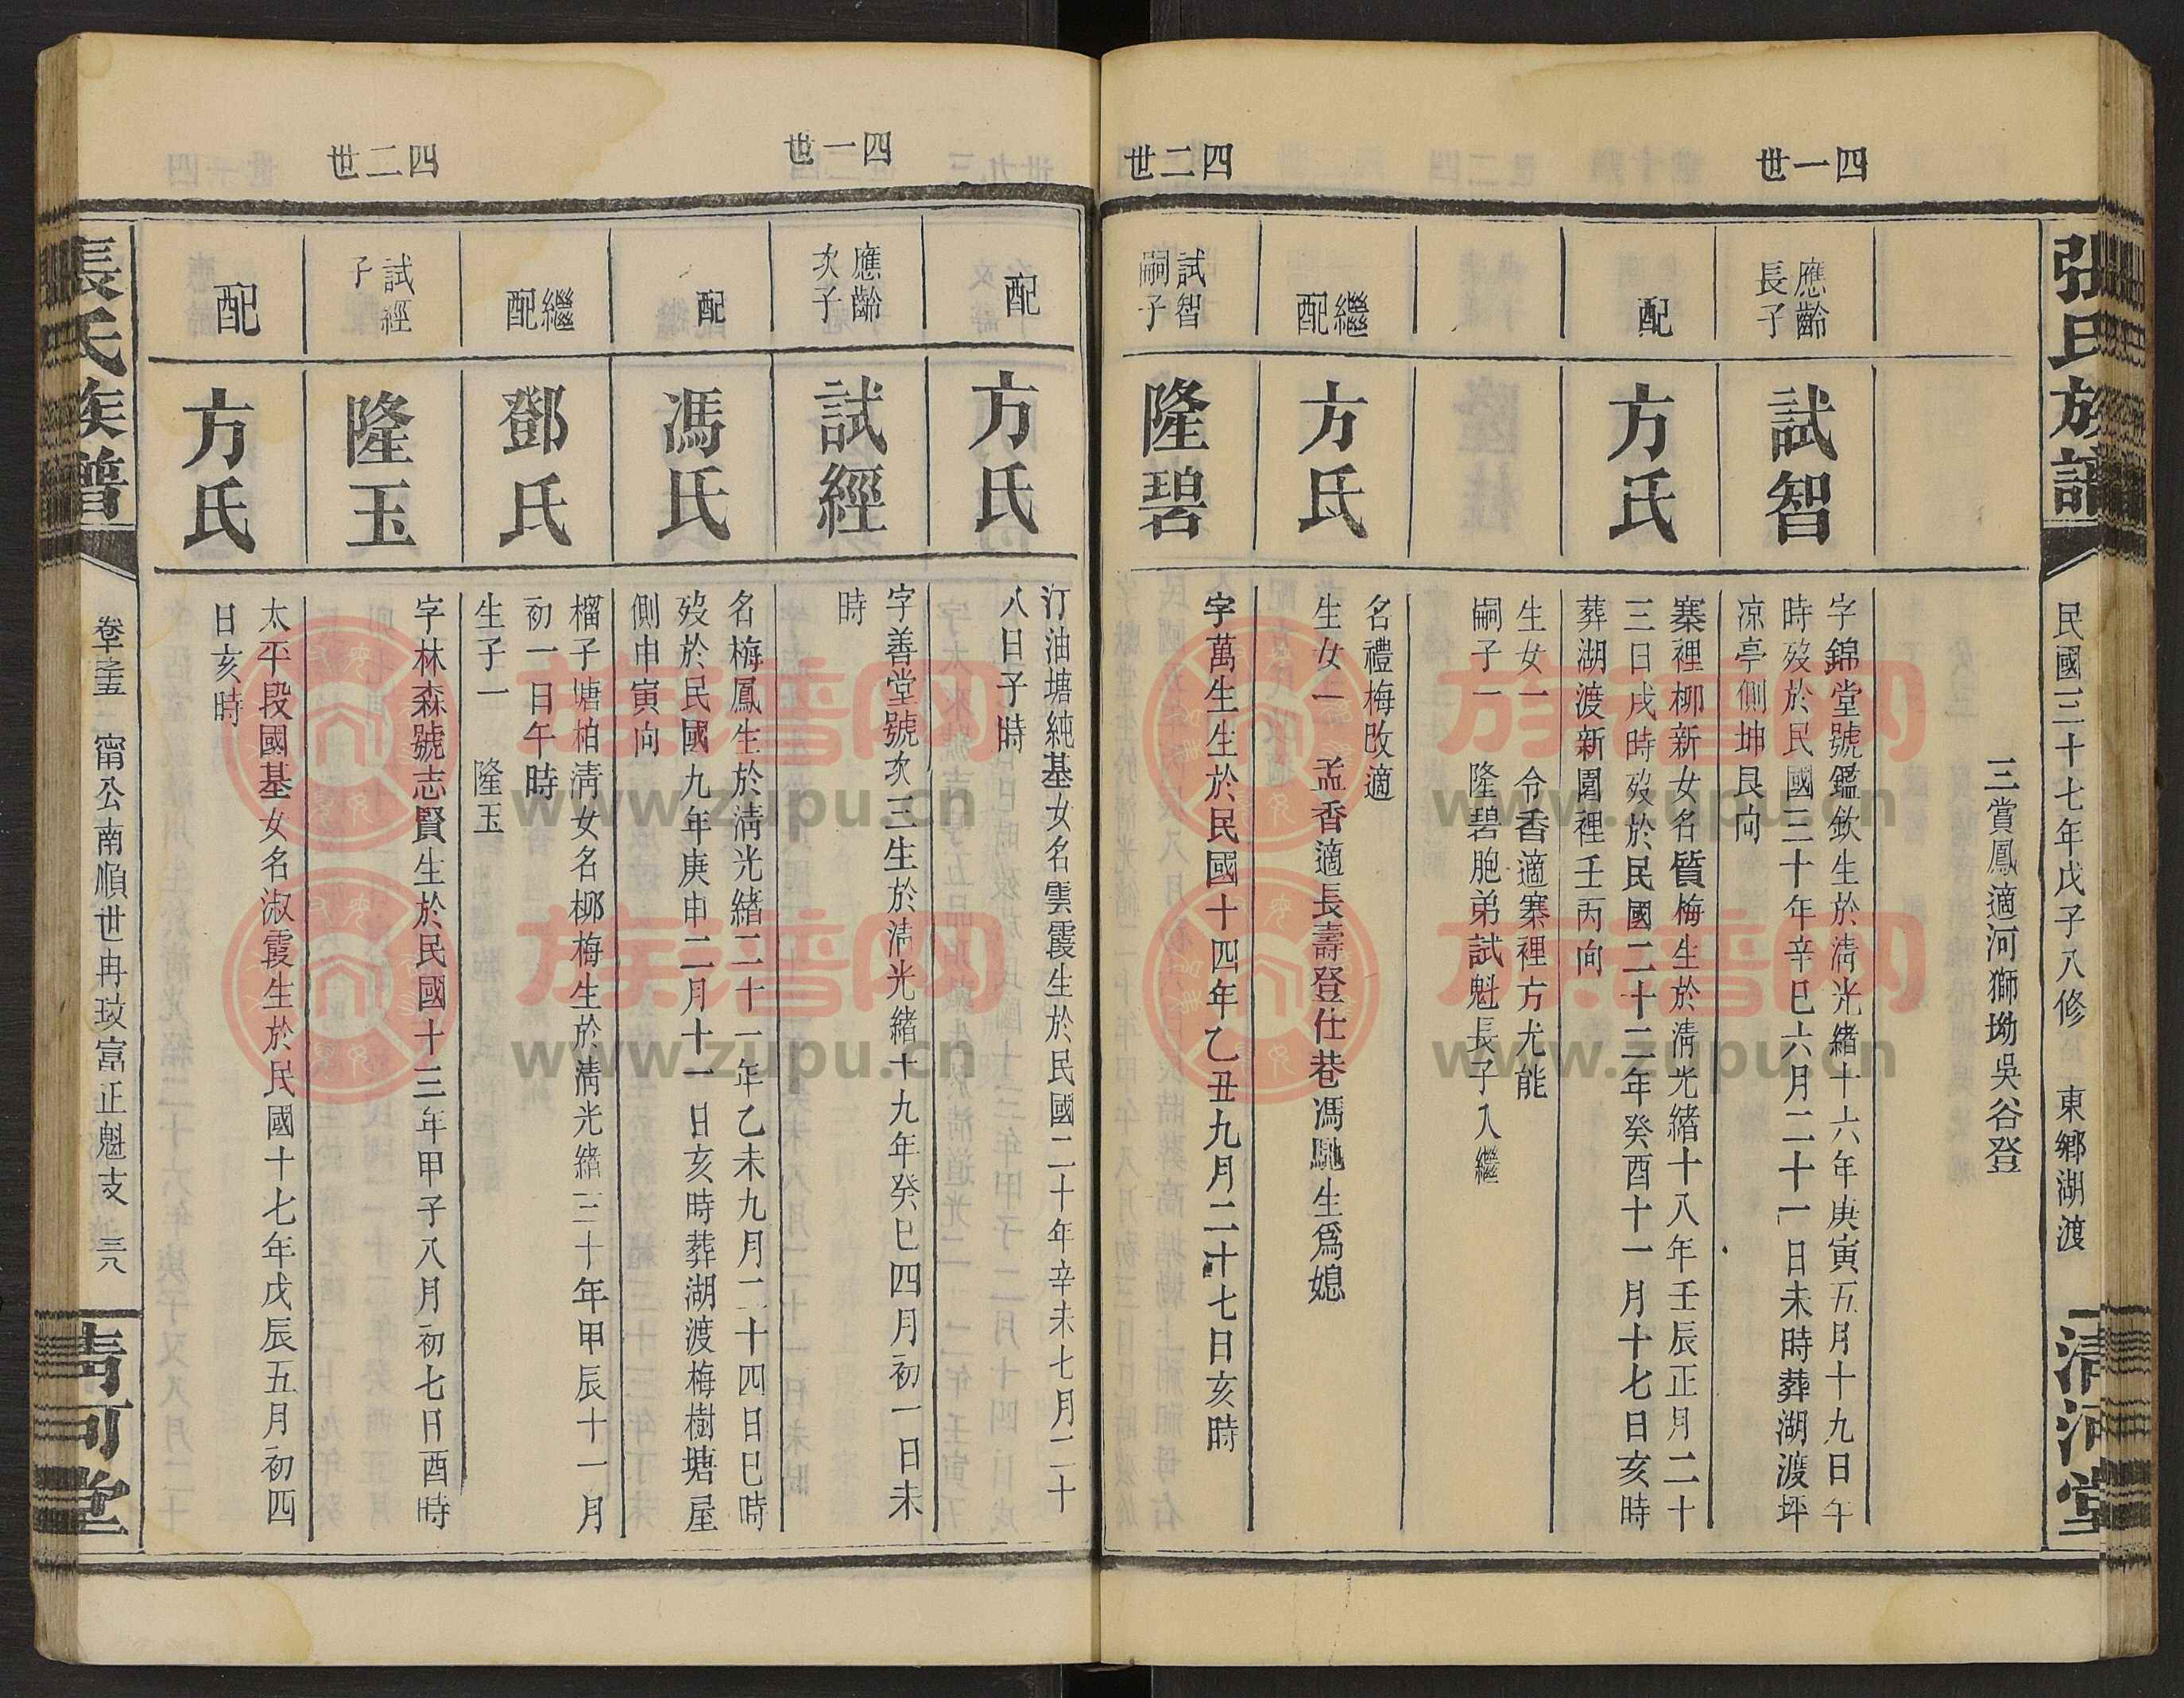 張氏族譜
民國三十七年戊子八修
東鄉湖渡
清河堂
三賞鳳適河獅坳吳谷登
四一世
應齡
長子
試智
字錦堂號鑑欽生於清光緒十六年庚寅五月十九日午
時歿於民國三十年辛巳六月二十一日未時葬湖渡坪
凉亭側坤艮向
配
方氏
寨裡柳新女名質梅生於清光緒十八年壬辰正月二十
三日戌時歿於民國二十二年癸酉十一月十七日亥時
葬湖渡新圍裡壬丙向
生女一 令香適寨裡方尤能
嗣子一 隆碧胞弟試魁長子入繼
繼
配
方氏
名禮梅改適
生女一 孟香適長壽登仕巷馮馳生爲媳
四二世
試智
嗣子
隆碧
字萬生生於民國十四年乙丑九月二十七日亥時
配
方氏
汀油塘純基女名雲霞生於民國二十年辛未七月二十
八日子時
四一世
應齡
次子
試經
字善堂號次三生於清光緒十九年癸巳四月初一日未
時
配
馮氏
名梅鳳生於清光緒二十一年乙未九月二十四日巳時
歿於民國九年庚申二月十一日亥時葬湖渡梅樹塘屋
側申寅向
繼
配
鄧氏
榴子塘柏清女名柳梅生於清光緒三十年甲辰十一月
初一日午時
生子一 隆玉
四二世
試經
子
隆玉
字林森號志賢生於民國十三年甲子八月初七日酉時
配
方氏
太平段國基女名淑霞生於民國十七年戊辰五月初四
日亥時
張氏族譜
甯公南順世冉玟富正魁支
三八
清河堂
族譜网
www.zupu.cn
族譜网
www.zupu.cn
族譜网
www.zupu.cn
族譜网
www.zupu.cn